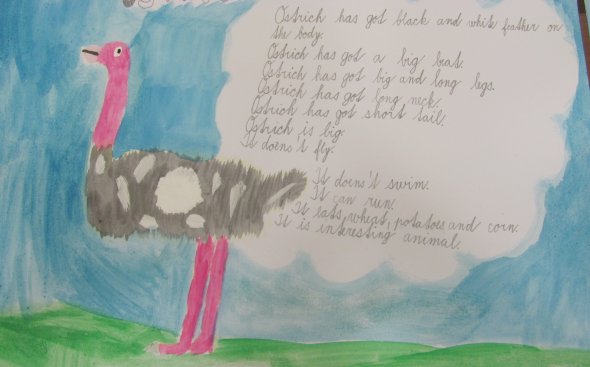 Ostrich has got black and white feather on
the body.
Ostrich has got a big beat.
Ostrich has got big and long legs.
Ostrich has got long neck.
Ostrich has got short tail.
Ostrich is big.
It doens't fly.
It doens't swim.
It can run.
It eats, wheat, potatoes and corn.
It is interesting animal.